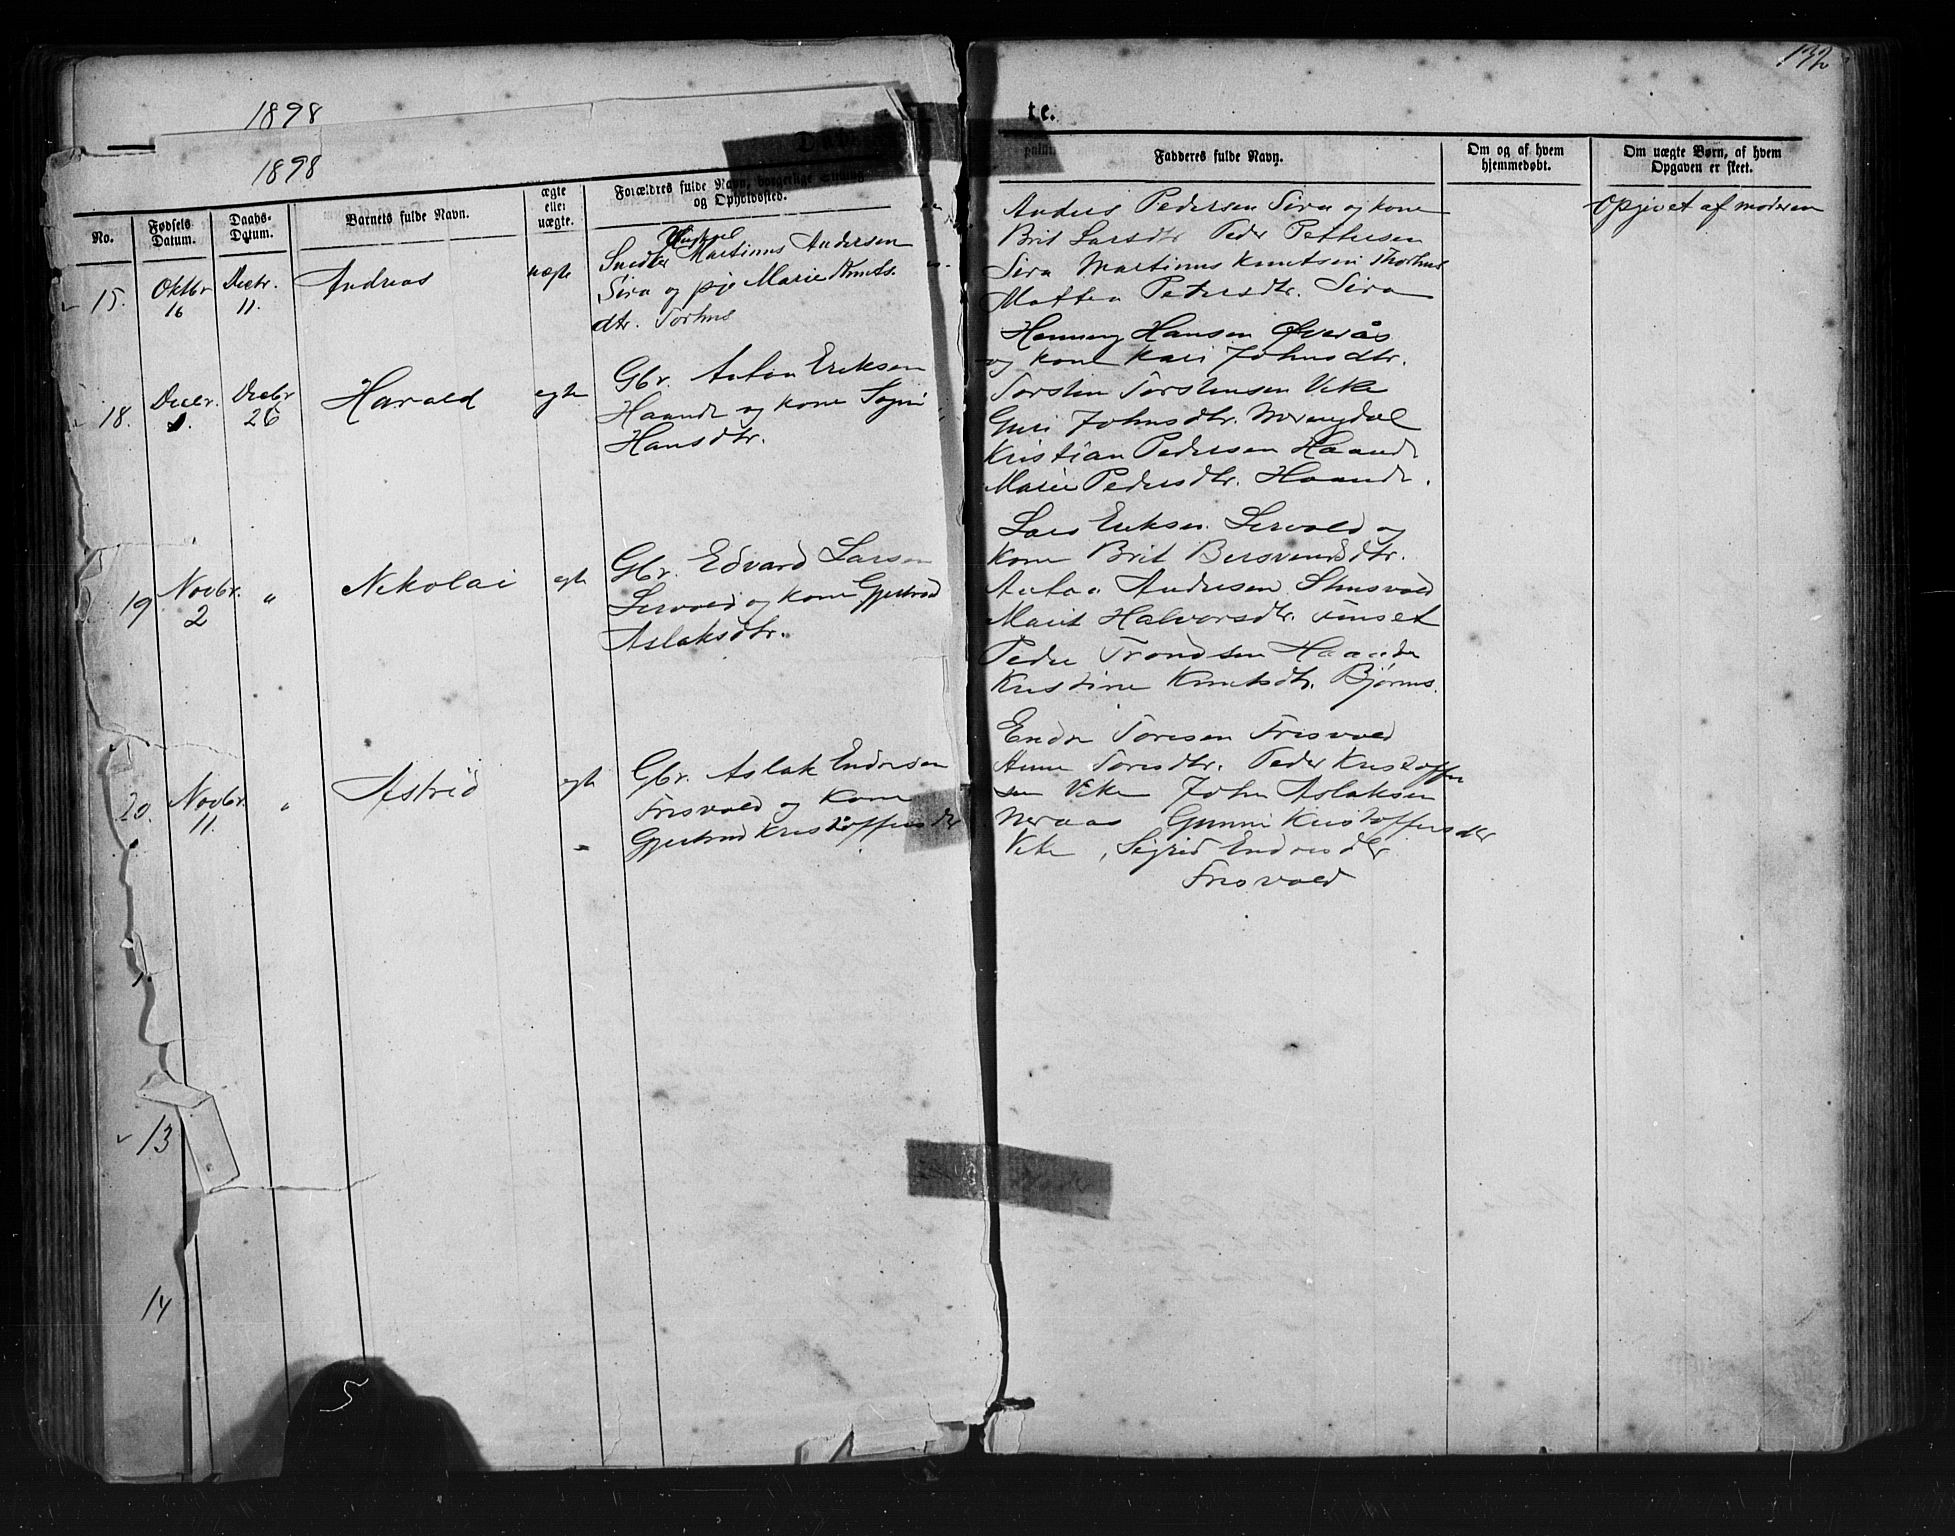 1898
1898
132
te.
No.
Fødsels Datum.
Daabs-Datum.
Barnets fulde Navn.
ægte eller uægte.
Forældres fulde Navn, borgerlige Stilling og Opholdssted.
Fadderes fulde Navn.
Om og af hvem hjemmedøbt.
Om uægte Børn, af hvem Opgaven er skeet.
15. Oktbr 16 Decbr. 11. Andreas uægte
Martinus Andersen
Sira og pige Marie Knuts-
dtr. Torhus
Anders Pedersen Sira og kone
Brit Larsdtr Peder Pettersen
Sira Martinus Knutsen Thorhus
Mattea Petersdtr. Sira
Opgivet af moderen
18. Decbr. Decbr 26 Harald egte
Gbr. Anton Eriksen
Haande og kone
Hansdtr.
Henning Hansen Øverås
og kone Kari Johnsdtr.
Torstin Torstensen Vike
Guri Johnsdtr.
Kristian Pedersen Haande
Marie Pedersdtr. Haande.
19 Novbr. 2 " Nekolai egte
Gbr. Edvard Larsen
Sirvold og kone Gjertrud
Aslaksdtr.
Lars Eriksen Sirvold og
kone Brit Bersvendsdtr.
Anton Andresen
Marit Halvorsdtr.
Peder Trondsen Haande
Kristine Knutsdtr. Bjørms.
20. Novbr. 11. " Astrid egte
Gbr. Aslak Endresen
Frisvold og kone
Gjertrud Kristoffersdtr
Endre Toresen Frisvold
Anne Toresdtr. Peder Kristoffer
sen Vike John Aslaksen
Neraas Gunni Kristoffersdtr
Vike, Sigrid Endresdtr
Frisvold
13
14
5